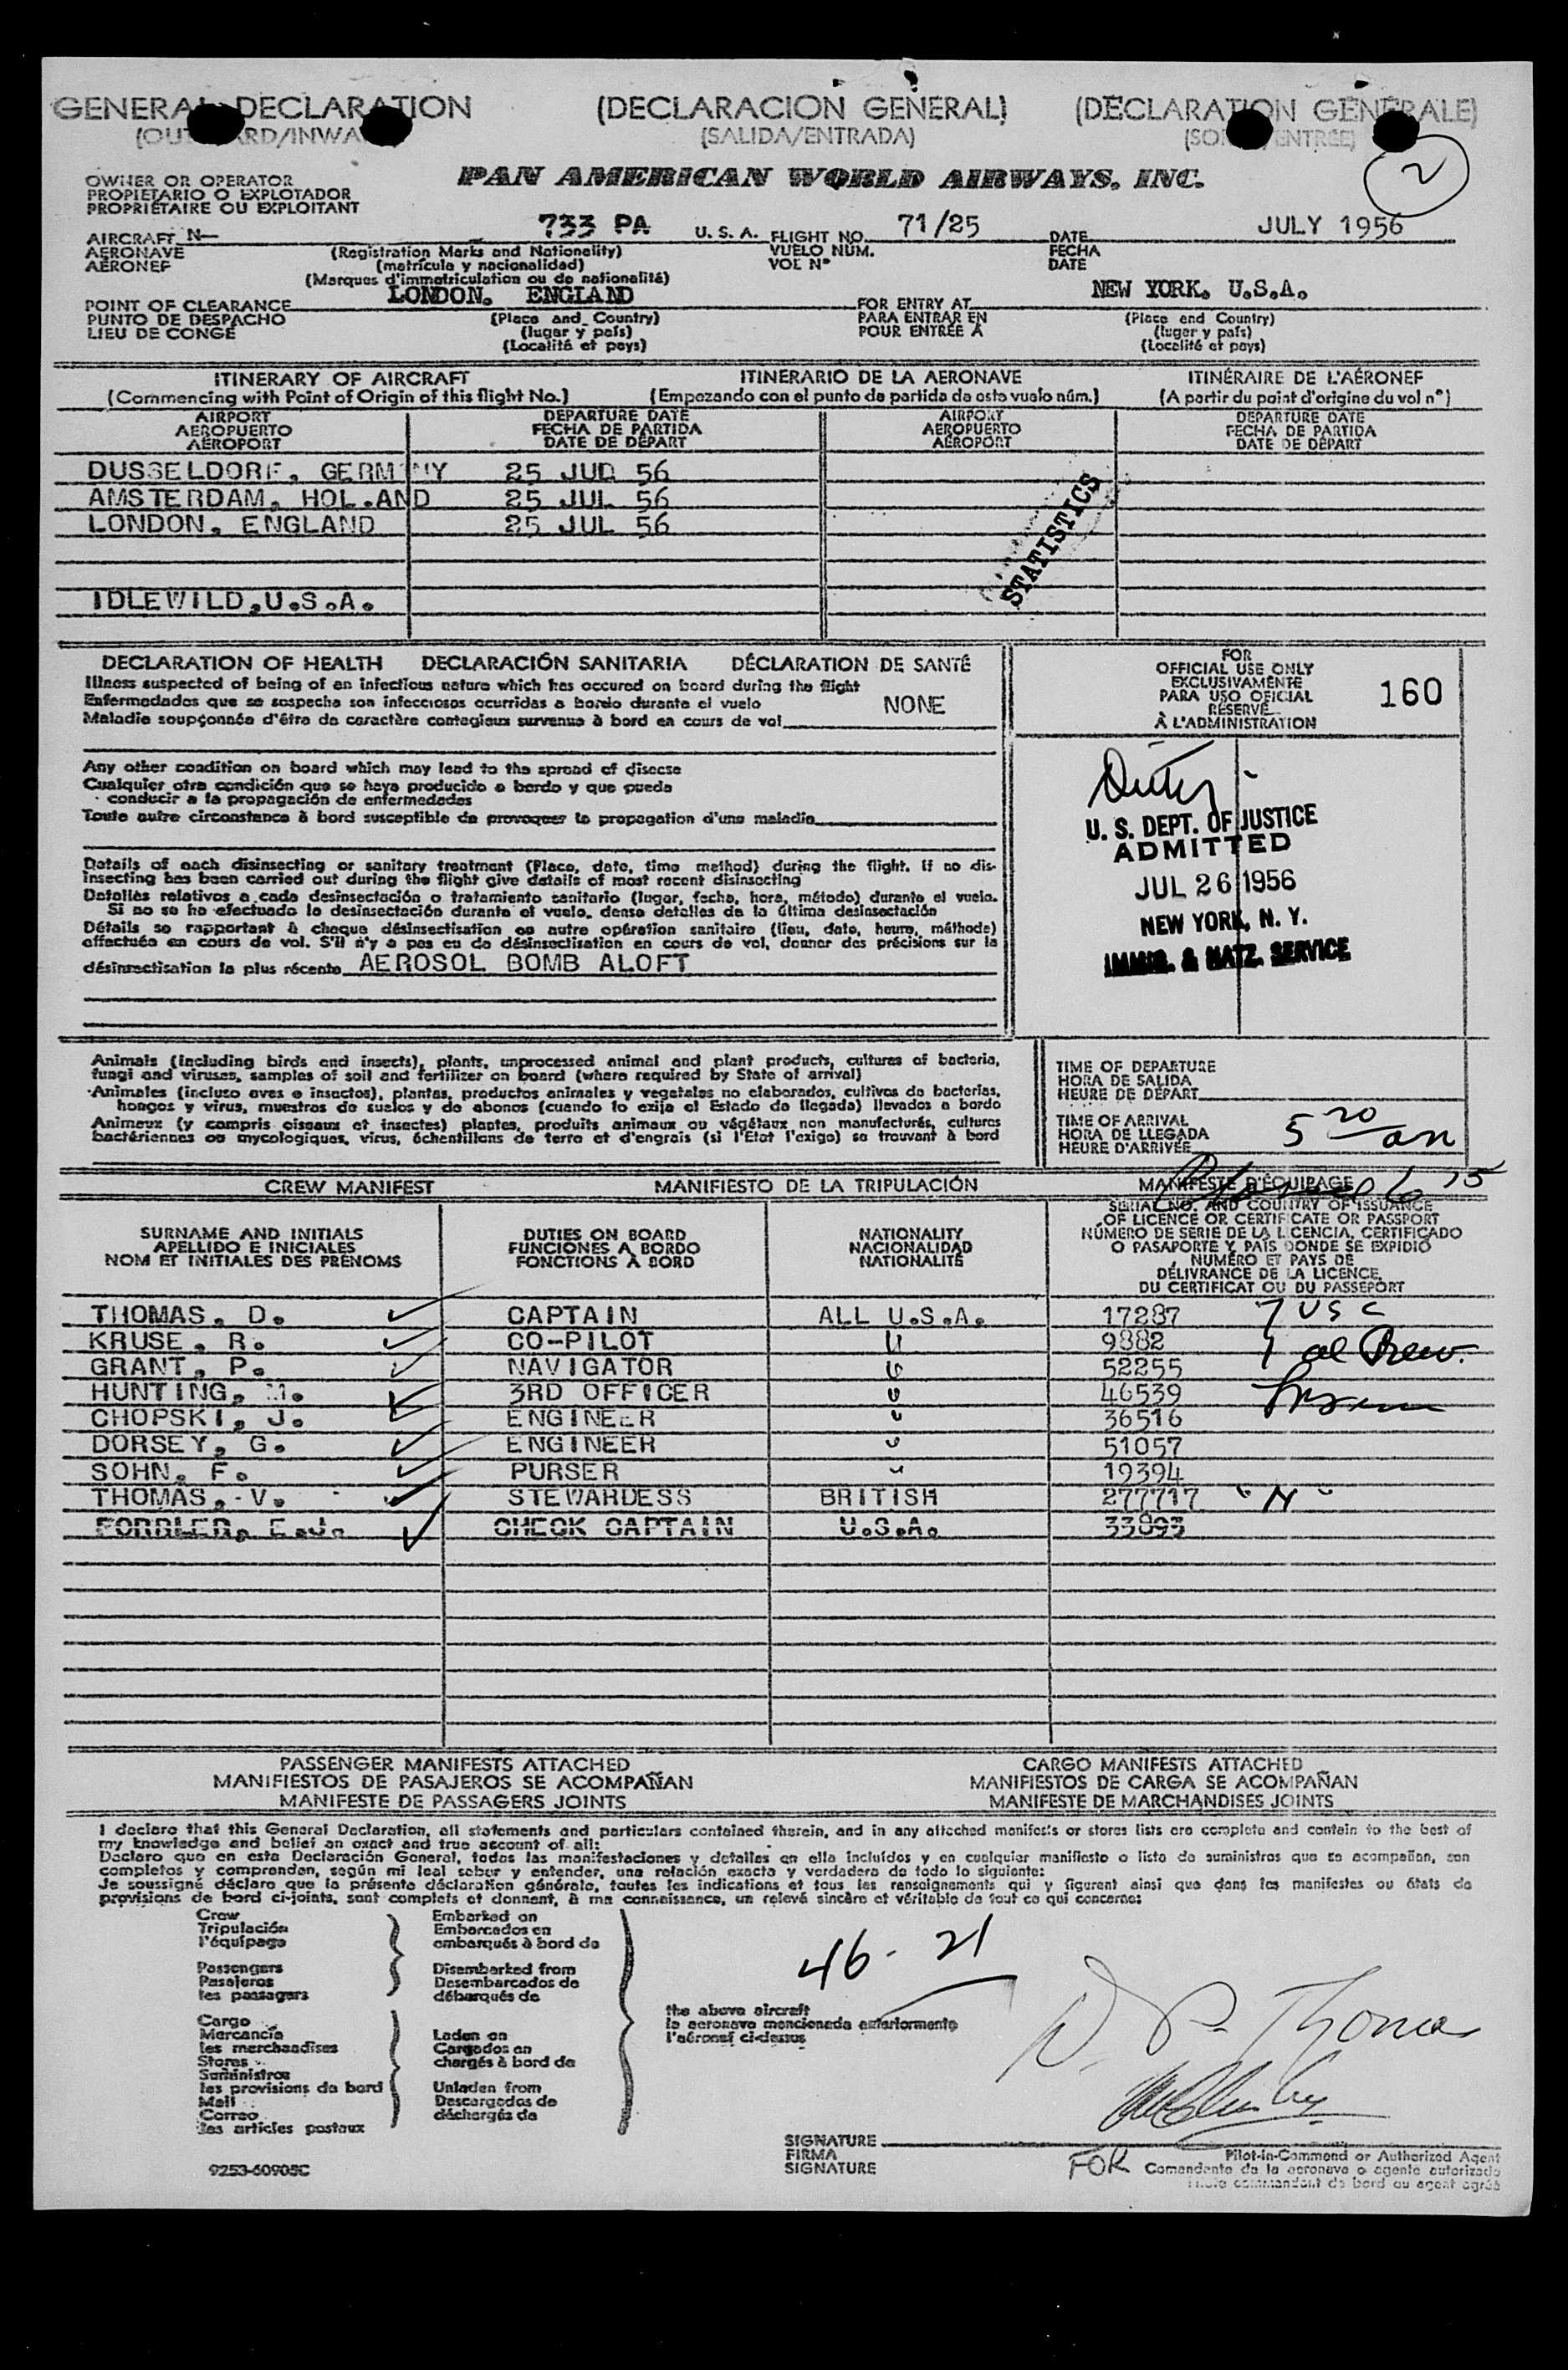 GENERAL DECLARATION (DECLARACION GENERAL) (DÉCLARATION GÉNÉRALE)
(SALIDA/ENTRADA)
2
OWNER OR OPERATOR
PROPIETARIO O EXPLOTADOR
PROPRIÉTAIRE OU EXPLOITANT
PAN AMERICAN WORLD AIRWAYS, INC.
AIRCRAFT N— 733 PA U.S.A. FLIGHT NO. 71/25 DATE JULY 1956
AERONAVE (Registration Marks and Nationality) VUELO NÚM. FECHA
AÉRONEF (matrícula y nacionalidad) VOL N° DATE
(Marques d'immatriculation ou de nationalité)
POINT OF CLEARANCE LONDON, ENGLAND FOR ENTRY AT NEW YORK, U.S.A.
PUNTO DE DESPACHO (Place and Country) PARA ENTRAR EN (Place and Country)
LIEU DE CONGÉ (lugar y país) POUR ENTRÉE À (lugar y país)
(Localité et pays) (Localité et pays)
ITINERARY OF AIRCRAFT ITINERARIO DE LA AERONAVE ITINÉRAIRE DE L'AÉRONEF
(Commencing with Point of Origin of this flight No.) (Empezando con el punto de partida de este vuelo núm.) (A partir du point d'origine du vol n°)
AIRPORT DEPARTURE DATE AIRPORT DEPARTURE DATE
AEROPUERTO FECHA DE PARTIDA AEROPUERTO FECHA DE PARTIDA
AÉROPORT DATE DE DÉPART AÉROPORT DATE DE DÉPART
DUSSELDORF, GERMANY 25 JUL 56
AMSTERDAM, HOLLAND 25 JUL 56
LONDON, ENGLAND 25 JUL 56
STATISTICS
IDLEWILD,U.S.A.
DECLARATION OF HEALTH DECLARACIÓN SANITARIA DÉCLARATION DE SANTÉ
Illness suspected of being of an infectious nature which has occured on board during the flight
Enfermedades que se sospecha son infecciosas ocurridas a bordo durante el vuelo
Maladie soupçonnée d'être de caractère contagieux survenue à bord en cours de vol NONE
FOR
OFFICIAL USE ONLY
EXCLUSIVAMENTE
PARA USO OFICIAL
RÉSERVÉ
À L'ADMINISTRATION
160
Any other condition on board which may lead to the spread of disease
Cualquier otra condición que se haya producido a bordo y que pueda
conducir a la propagación de enfermedades
Toute autre circonstance à bord susceptible de provoquer la propagation d'une maladie
U. S. DEPT. OF JUSTICE
ADMITTED
JUL 26 1956
NEW YORK, N. Y.
IMMIG. & NATZ. SERVICE
Details of each disinsecting or sanitary treatment (Place, date, time method) during the flight. If no dis-
insecting has been carried out during the flight give details of most recent disinsecting
Detalles relativos a cada desinsectación o tratamiento sanitario (lugar, fecha, hora, método) durante el vuelo.
Si no se ha efectuado la desinsectación durante el vuelo, dense detalles de la última desinsectación
Détails se rapportant à chaque désinsectisation ou autre opération sanitaire (lieu, date, heure, méthode)
effectuée en cours de vol. S'il n'y a pas eu de désinsectisation en cours de vol, donner des précisions sur la
désinsectisation la plus récente AEROSOL BOMB ALOFT
Animals (including birds and insects), plants, unprocessed animal and plant products, cultures of bacteria,
fungi and viruses, samples of soil and fertilizer on board (where required by State of arrival)
Animales (incluso aves e insectos), plantas, productos animales y vegetales no elaborados, cultivos de bacterias,
hongos y virus, muestras de suelos y de abonos (cuando lo exija el Estado de llegada) llevados a bordo
Animaux (y compris oiseaux et insectes) plantes, produits animaux ou végétaux non manufacturés, cultures
bactériennes ou mycologiques, virus, échantillons de terre et d'engrais (si l'Etat l'exige) se trouvant à bord
TIME OF DEPARTURE
HORA DE SALIDA
HEURE DE DÉPART
TIME OF ARRIVAL
HORA DE LLEGADA
HEURE D'ARRIVÉE
5 20 am
CREW MANIFEST MANIFIESTO DE LA TRIPULACIÓN MANIFESTE D'ÉQUIPAGE
6 15
SURNAME AND INITIALS DUTIES ON BOARD NATIONALITY
APELLIDO E INICIALES FUNCIONES A BORDO NACIONALIDAD
NOM ET INITIALES DES PRÉNOMS FONCTIONS À BORD NATIONALITÉ
SERIAL NO. AND COUNTRY OF ISSUANCE
OF LICENCE OR CERTIFICATE OR PASSPORT
NÚMERO DE SERIE DE LA LICENCIA, CERTIFICADO
O PASAPORTE Y PAÍS DONDE SE EXPIDIÓ
NUMÉRO ET PAYS DE
DÉLIVRANCE DE LA LICENCE,
DU CERTIFICAT OU DU PASSEPORT
THOMAS, D. CAPTAIN ALL U.S.A. 17287 7 USC
KRUSE, R. CO-PILOT " 9882
GRANT, P. NAVIGATOR " 52255
HUNTING, M. 3RD OFFICER " 46539
CHOPSKI, J. ENGINEER " 36516
DORSEY, G. ENGINEER " 51057
SOHN, F. PURSER " 19394
THOMAS, V. STEWARDESS BRITISH 277717 " N "
FORBLER, E.J. CHECK CAPTAIN U.S.A. 33893
PASSENGER MANIFESTS ATTACHED CARGO MANIFESTS ATTACHED
MANIFIESTOS DE PASAJEROS SE ACOMPAÑAN MANIFIESTOS DE CARGA SE ACOMPAÑAN
MANIFESTE DE PASSAGERS JOINTS MANIFESTE DE MARCHANDISES JOINTS
I declare that this General Declaration, all statements and particulars contained therein, and in any attached manifests or stores lists are complete and contain to the best of
my knowledge and belief an exact and true account of all:
Declaro que en esta Declaración General, todas las manifestaciones y detalles en ella incluídos y en cualquier manifiesto o lista de suministros que se acompañan, son
completos y comprenden, según mi leal saber y entender, una relación exacta y verdadera de todo lo siguiente:
Je soussigné déclare que la présente déclaration générale, toutes les indications et tous les renseignements qui y figurent ainsi que dans les manifestes ou états de
provisions de bord ci-joints, sont complets et donnent, à ma connaissance, un relevé sincère et véritable de tout ce qui concerne:
Crew Embarked on
Tripulación Embarcados en
l'équipage embarqués à bord de
Passengers Disembarked from
Pasajeros Desembarcados de
les passagers débarqués de
46 - 21
the above aircraft
la aeronave mencionada anteriormente
l'aéronef ci-dessus
Cargo
Mercancía Laden on
les marchandises Cargados en
Stores chargés à bord de
Suministros
les provisions de bord Unladen from
Mail Descargados de
Correo déchargés de
les articles postaux
D. P. Thomas
SIGNATURE
FIRMA
SIGNATURE
FOR
Pilot-in-Command or Authorized Agent
Comandante de la aeronave o agente autorizado
Pilote commandant de bord ou agent agréé
9253-60905C